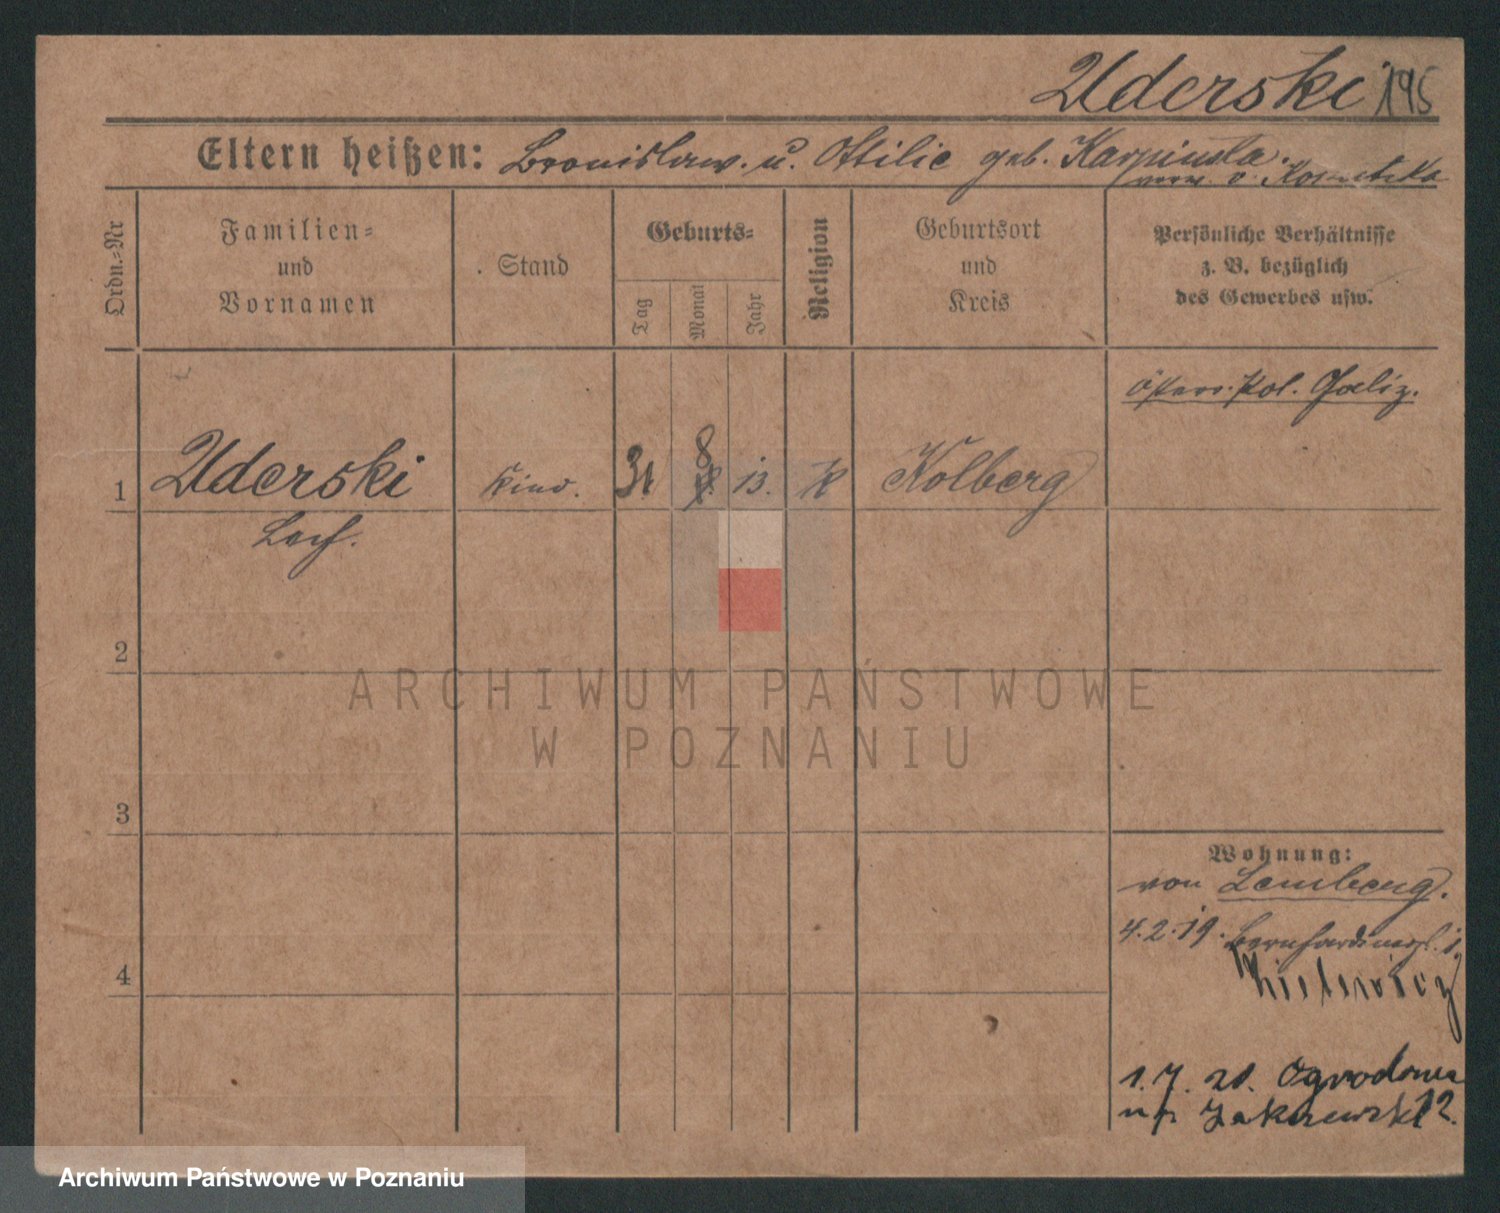 Uderski 195
Eltern heißen: Bronislaw. u. Ottilie geb. Karpinska.
verw. v.
Ordn.-Nr
Familien-
und
Vornamen
Stand
Geburts-
Tag
Monat
Jahr
Religion
Geburtsort
und
Kreis
Persönliche Verhältnisse
z. B. bezüglich
des Gewerbes usw.
österr. Pol. Galiz.
1 Uderski Kind. 31 8 13. K Kolberg
Lech.
2
3
4
Wohnung:
von Lemberg.
4.2.19. Bernhardinerpl. 1.
1.7.20. Ogrodowa
12.
ARCHIWUM PAŃSTWOWE
W POZNANIU
Archiwum Państwowe w Poznaniu